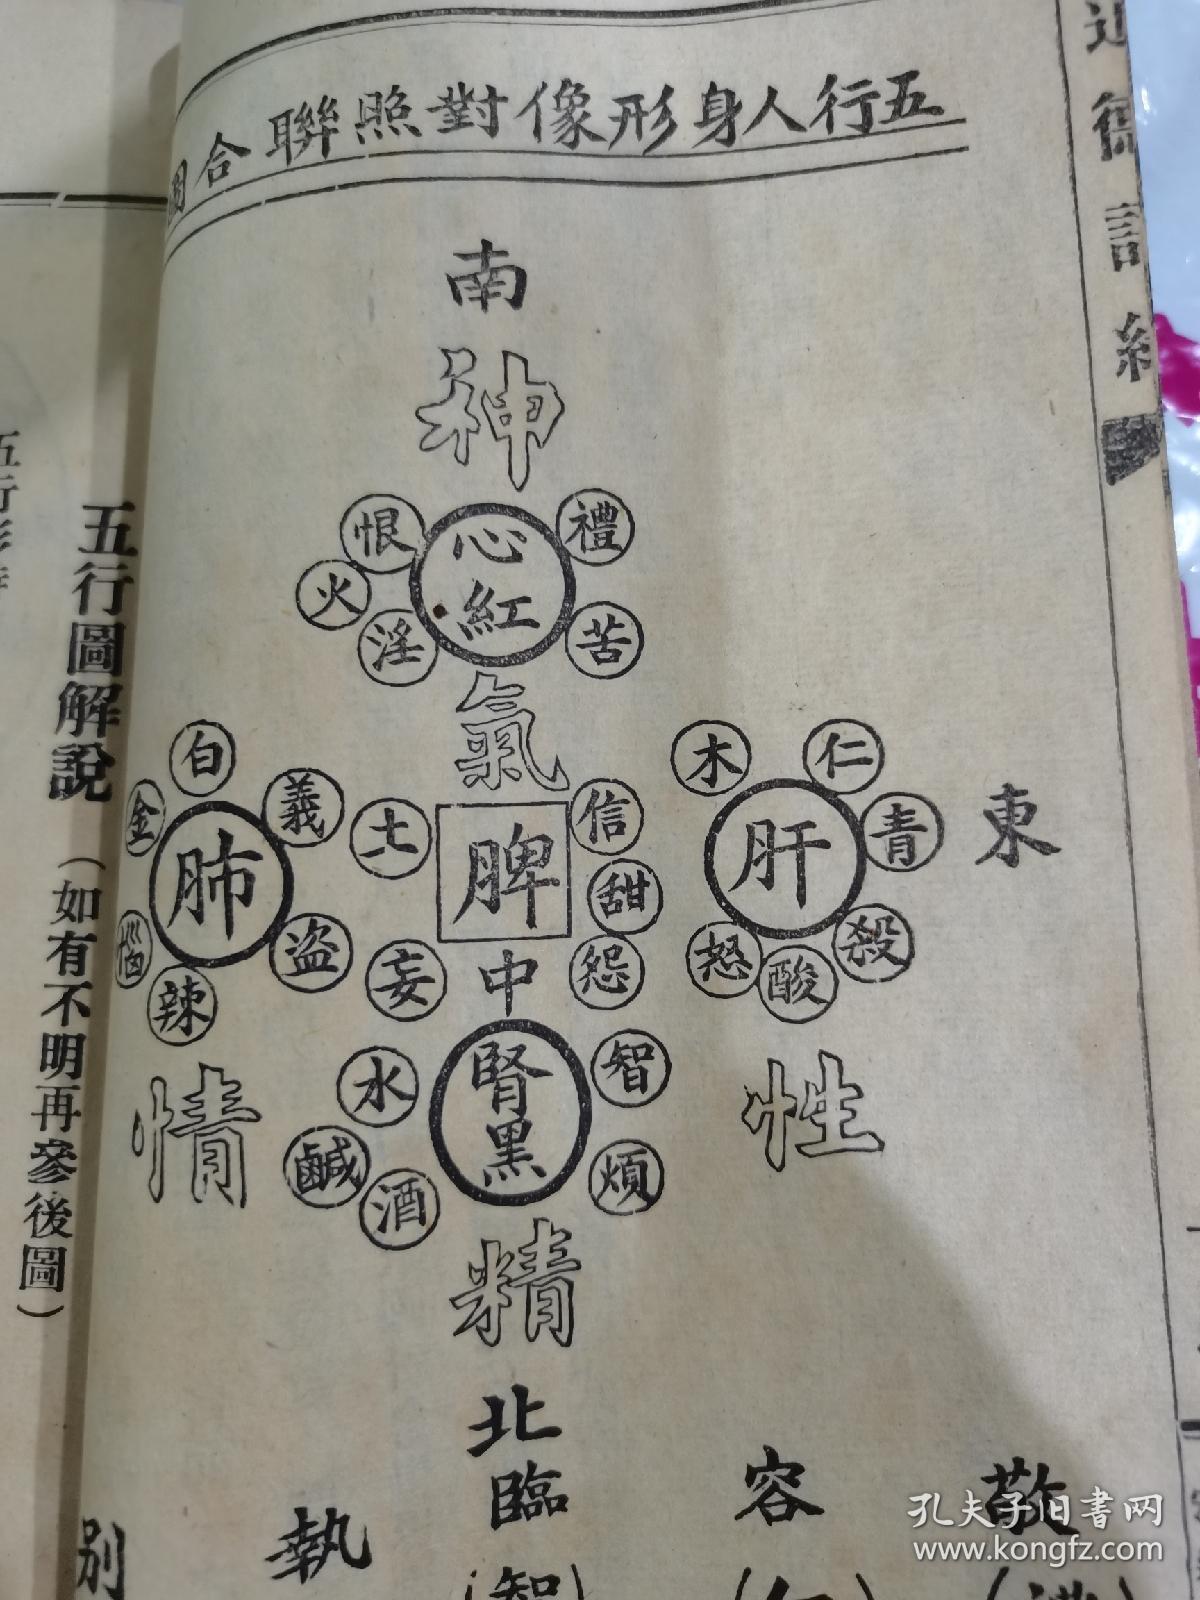 五行人身形像對照聯合圖
南
神
心紅
恨
火
淫
禮
苦
氣
白
金
義
肺
盜
惱
辣
情
土
脾
信
甜
怨
妄
中
木
仁
青
肝
殺
酸
怒
東
性
水
腎黑
智
煩
鹹
酒
精
北
敬
容
臨
執
別
(智)
五行圖解說(如有不明再參後圖)
孔夫子旧书网
www.kongfz.com